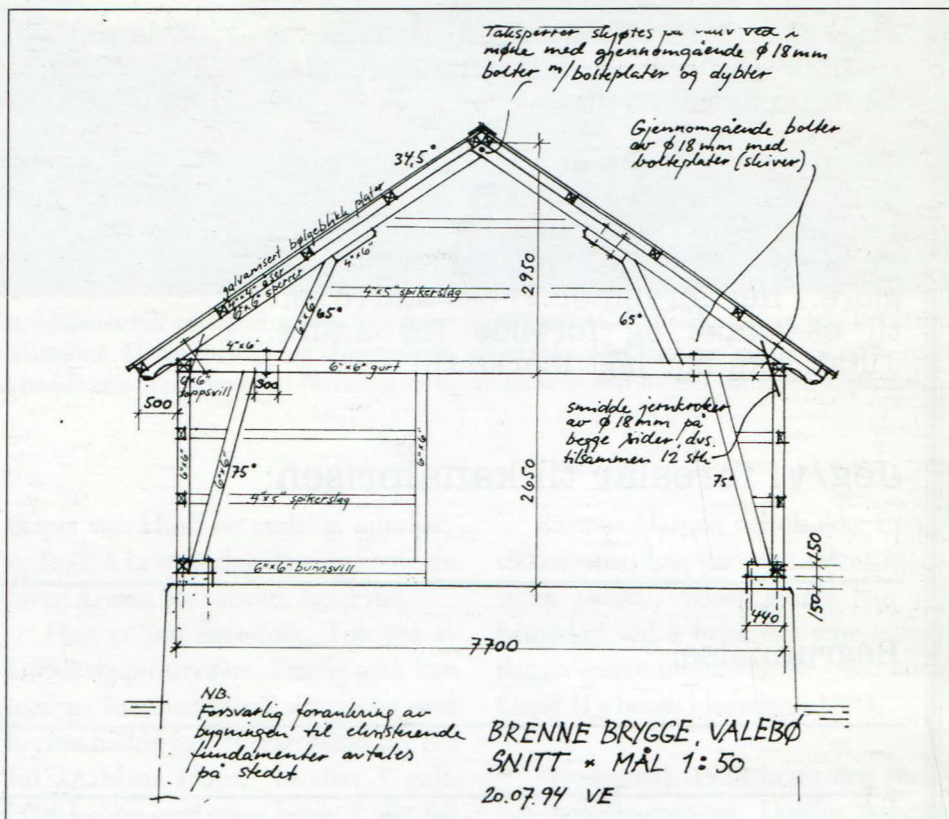 Taksperrer skjøtes på ved i
møne med gjennomgående ϕ 18mm
bolter m/bolteplater og dybler
Gjennomgående bolter
av ϕ 18mm med
bolteplater (skiver)
34,5°
galvanisert bølgeblikk plater
4"x4" åser
6"x6" sperrer
4"x6"
2950
4"x5" spikerslag
6"x6"
65°
65°
4"x6"
6"x6" gurt
6"x6"
toppsvill
300
500
smidde jernkroker
av ϕ 18mm på
begge sider, dvs.
tilsammen 12 stk.
6"x6"
6"x6"
75°
6"x6"
2650
75°
4"x5" spikerslag
6"x6" bunnsvill
150
150
440
7700
NB.
Forsvarlig forankring av
bygningen til eksisterende
fundamenter avtales
på stedet
BRENNE BRYGGE, VALEBØ
SNITT * MÅL 1:50
20.07.94 VE